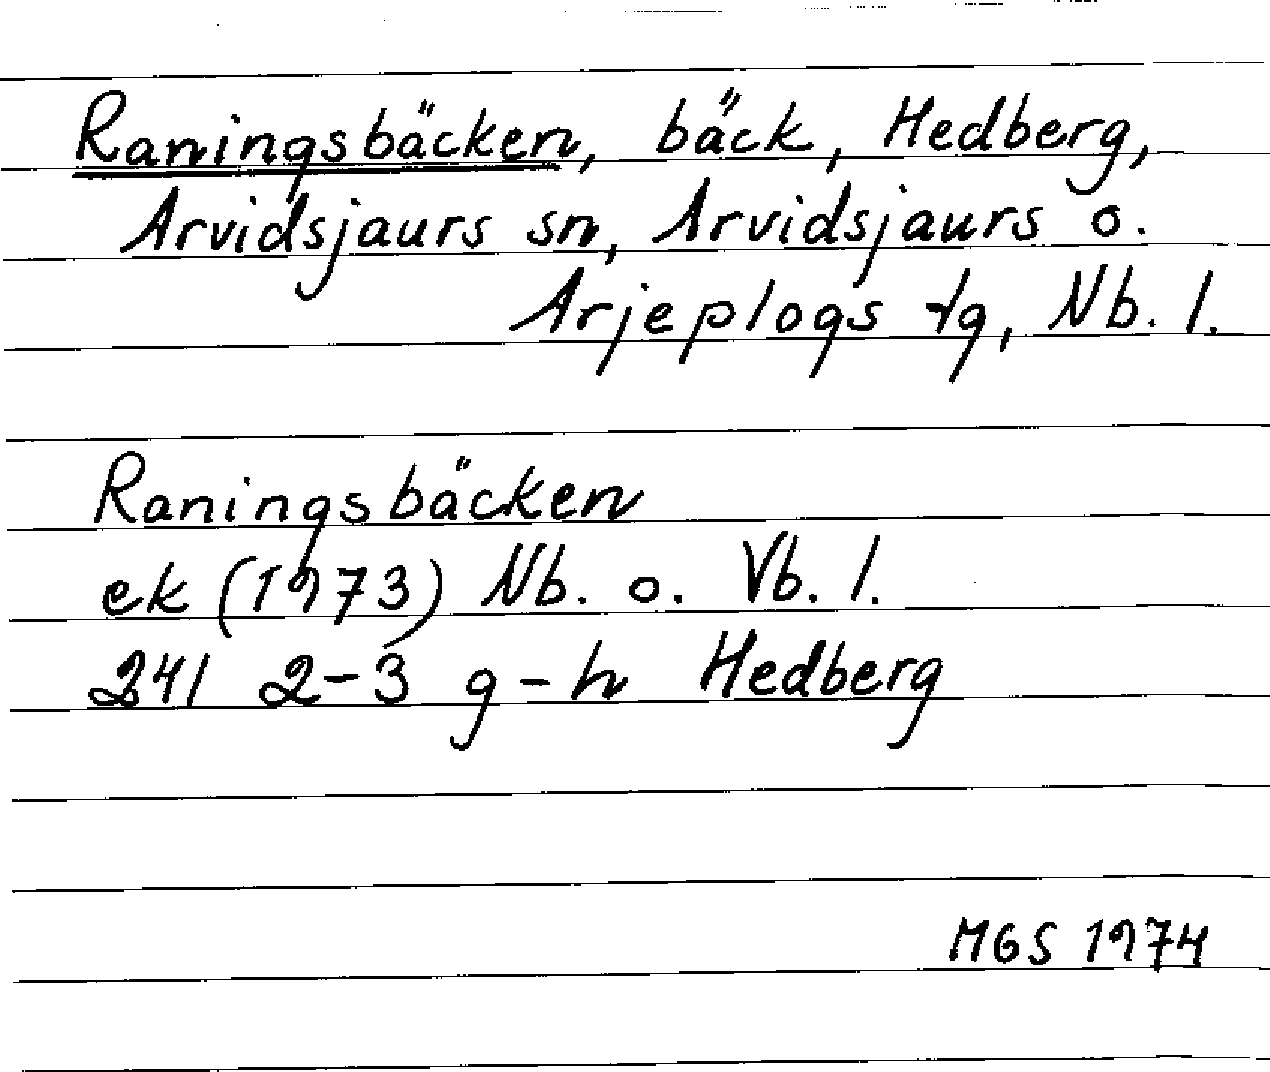 Raningsbäcken, bäck, Hedberg,
Arvidsjaurs sn, Arvidsjaurs o.
Arjeplogs tg, Nb. l.
Raningsbäcken
ek (1973) Nb. o. Vb. l.
241 2-3 g-h Hedberg
MGS 1974